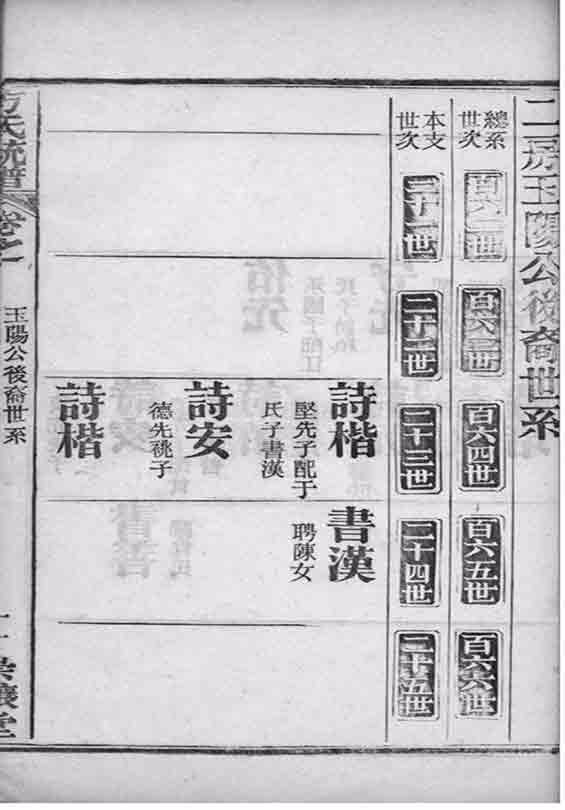 二房玉陽公後裔世系
總系世次
百六二世
百六三世
百六四世
百六五世
百六六世
本支世次
二十一世
二十二世
二十三世
二十四世
二十五世
詩楷
堅先子配于
氏子書漢
書漢
聘陳女
詩安
德先祧子
詩楷
方氏統譜
卷之
玉陽公後裔世系